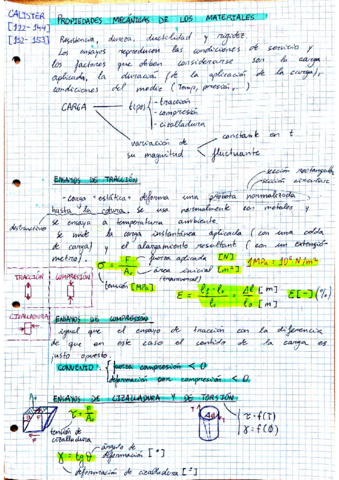 CALISTER
[122-144]
[152-153]
PROPIEDADES MECÁNICAS DE LOS MATERIALES
Resistencia, dureza, ductilidad y rigidez.
Los ensayos reproducen las condiciones de servicio y
los factores que deben considerarse son la carga
aplicada, la duración (de la aplicación de la carga),
condiciones del medio (Temp, presión, ...)
CARGA
tipos
- tracción
- compresión
- cizalladura
variación de
su magnitud
constante en t
fluctuante
sección rectangular
sección circular
ENSAYOS DE TRACCIÓN
- carga "estática" deforma una probeta normalizada
hasta la rotura. se usa normalmente con metales.
destructivo
se ensaya a temperatura ambiente.
se mide la carga instantánea aplicada (con una celda
de carga) y el alargamiento resultant (con un extensó-
metro).
σ = F/A₀
fuerza aplicada [N]
área inicial [m²]
(transversal)
1MPa = 10⁶ N/m²
tensión [MPa]
ε = (lf - l₀)/l₀ = Δl/l₀ [m]/[m]
ε[-](%)
TRACCIÓN
COMPRESIÓN
CIZALLADURA
ENSAYOS DE COMPRESIÓN
igual que el ensayo de tracción con la diferencia
de que en este caso el sentido de la carga es
justo opuesto.
CONVENIO:
fuerza compresión < 0
deformación con compresión < 0.
ENSAYOS DE CIZALLADURA Y DE TORSIÓN
τ = F/A₀
tensión de
cizalladura
γ = tg θ
ángulo de
deformación [°]
deformación de cizalladura [-]
τ = f(T)
γ = f(φ)